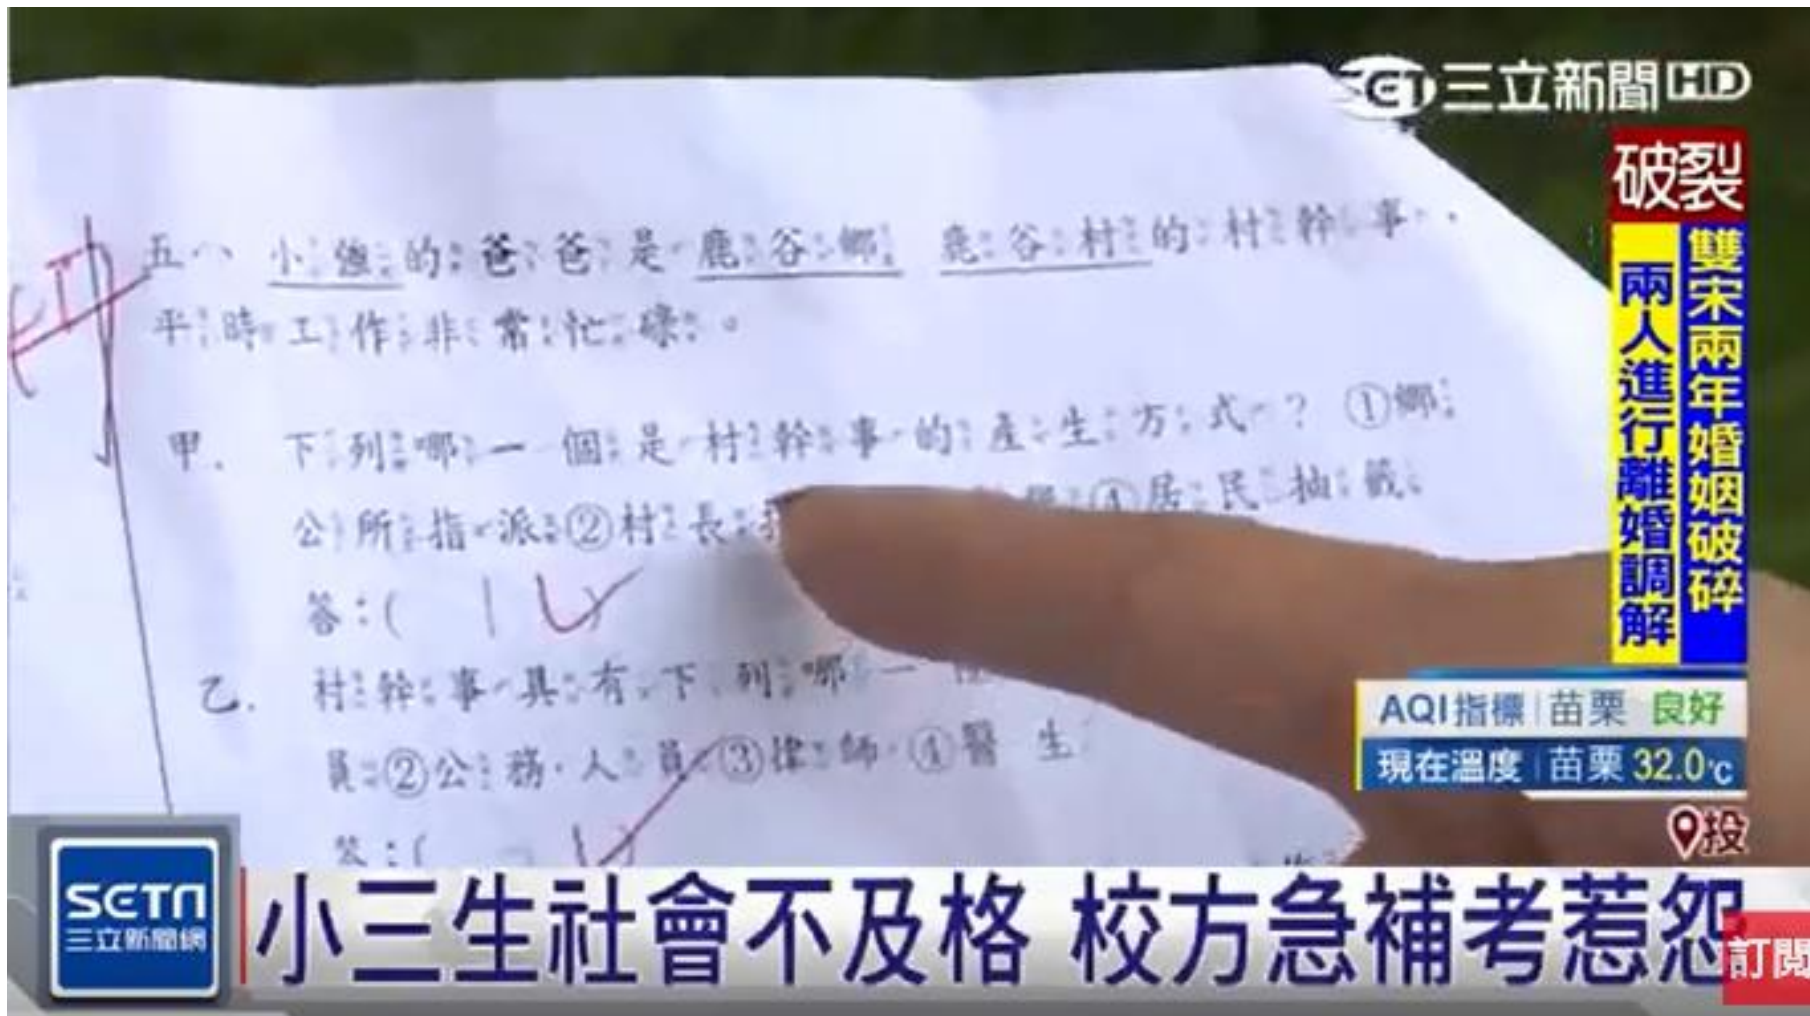 SET三立新聞HD
破裂
雙宋兩年婚姻破碎
兩人進行離婚調解
五、小強的爸爸是鹿谷鄉鹿谷村的村幹事，
平時工作非常忙碌。
甲、下列哪一個是村幹事的產生方式？①鄉
公所指派②村長 ④居民抽籤
答：( 1 )
乙、村幹事具有下列哪一
員②公務人員③律師④醫生
答：(
AQI指標 苗栗 良好
現在溫度 苗栗 32.0℃
投
SETN
三立新聞網
小三生社會不及格 校方急補考惹怨
訂閱